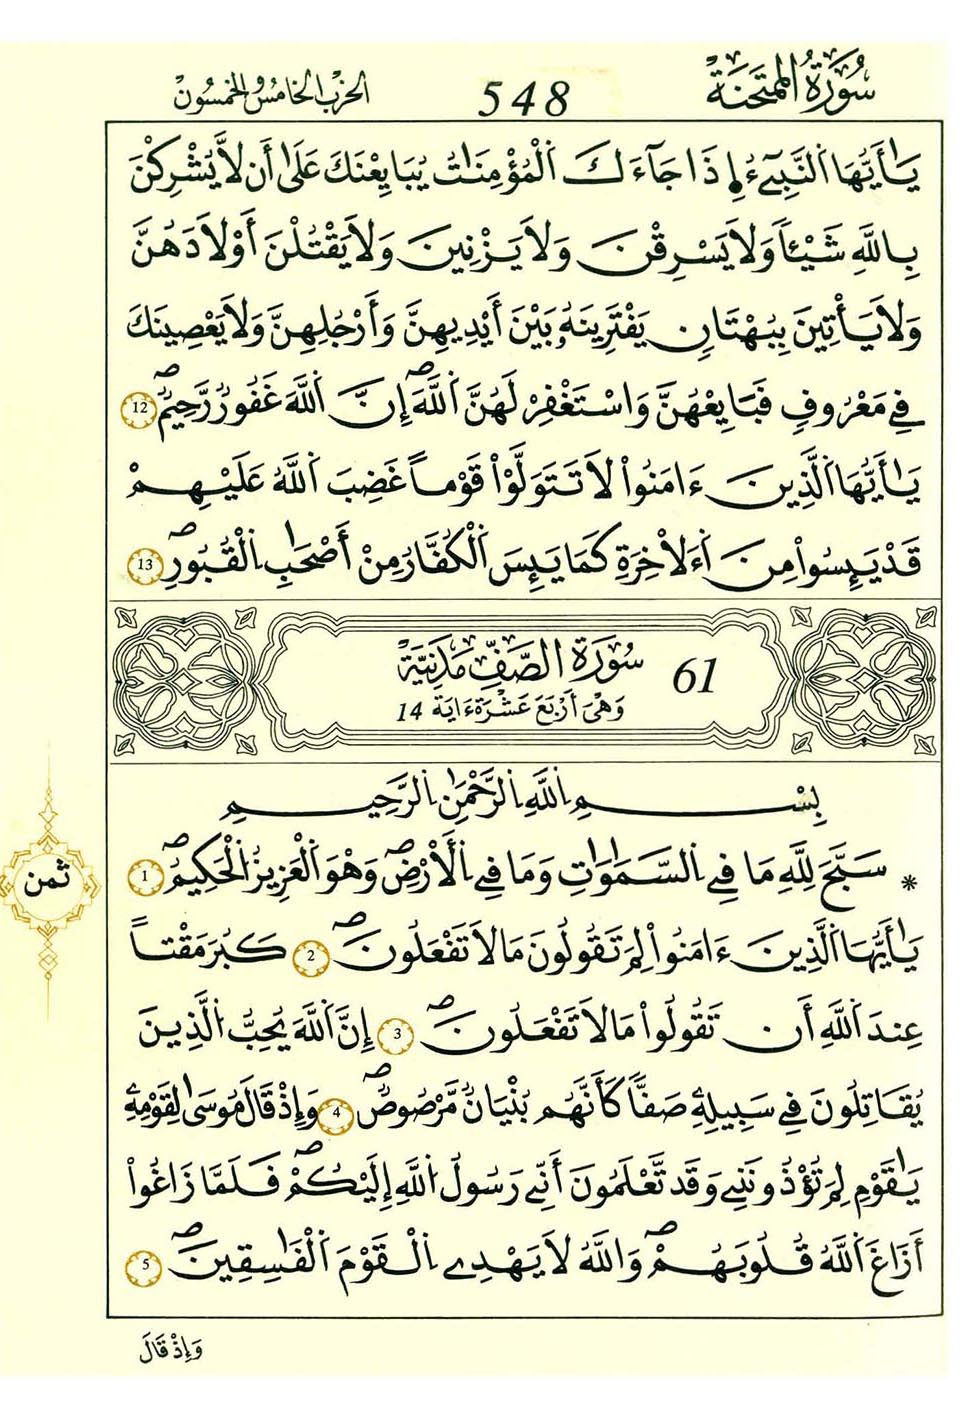 سُورَةُ الْمُمْتَحَنَةِ 548 الحزب الخامس والخمسون
يَٰأَيُّهَا اَلنَّبِيٓءُ اِذَا جَآءَكَ اَلْمُؤْمِنَٰتُ يُبَايِعْنَكَ عَلَىٰ أَن لَّا يُشْرِكْنَ
بِاللَّهِ شَيْـٔاً وَلَا يَسْرِقْنَ وَلَا يَزْنِينَ وَلَا يَقْتُلْنَ أَوْلَادَهُنَّ
وَلَا يَأْتِينَ بِبُهْتَانٍ يَفْتَرِينَهُۥ بَيْنَ أَيْدِيهِنَّ وَأَرْجُلِهِنَّ وَلَا يَعْصِينَكَ
فِے مَعْرُوفٍ فَبَايِعْهُنَّ وَاسْتَغْفِرْ لَهُنَّ اَللَّهَۖ إِنَّ اَللَّهَ غَفُورٌ رَّحِيمٌۖ 12
يَٰأَيُّهَا اَلَّذِينَ ءَامَنُواْ لَا تَتَوَلَّوْاْ قَوْماً غَضِبَ اَللَّهُ عَلَيْهِمْ
قَدْ يَئِسُواْ مِنَ اَءَلَاخِرَةِ كَمَا يَئِسَ اَلْكُفَّارُ مِنْ أَصْحَٰبِ اِلْقُبُورِۖ 13
سُورَةُ الصَّفِّ مَدَنِيَّة 61
وَهْىَ أَرْبَعَ عَشْرَةَ ءَايَة 14
بِسْمِ اِللَّهِ اِلرَّحْمَٰنِ اِلرَّحِيمِ
* سَبَّحَ لِلَّهِ مَا فِے اِلسَّمَٰوَٰتِ وَمَا فِے اِلْأَرْضِۖ وَهْوَ اَلْعَزِيزُ اُلْحَكِيمُۖ 1
ثمن
يَٰأَيُّهَا اَلَّذِينَ ءَامَنُواْ لِمَ تَقُولُونَ مَا لَا تَفْعَلُونَۖ 2 كَبُرَ مَقْتاً
عِندَ اَللَّهِ أَن تَقُولُواْ مَا لَا تَفْعَلُونَۖ 3 إِنَّ اَللَّهَ يُحِبُّ اُلَّذِينَ
يُقَاتِلُونَ فِے سَبِيلِهِۦ صَفّاً كَأَنَّهُم بُنْيَانٌ مَّرْصُوصٌۖ 4 وَإِذْ قَالَ مُوسَىٰ لِقَوْمِهِۦ
يَٰقَوْمِ لِمَ تُؤْذُونَنِے وَقَد تَّعْلَمُونَ أَنِّے رَسُولُ اُللَّهِ إِلَيْكُمْۖ فَلَمَّا زَاغُواْ
أَزَاغَ اَللَّهُ قُلُوبَهُمْۖ وَاللَّهُ لَا يَهْدِے اِلْقَوْمَ اَلْفَٰسِقِينَۖ 5
وَإِذْ قَالَ